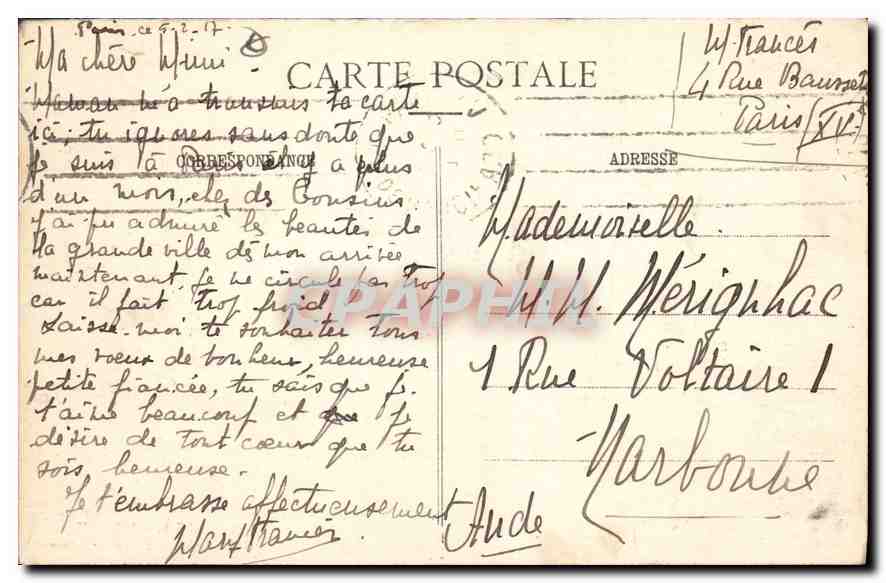 Paris, ce 5-2-17-
Ma chère Mimi -
Maman m'a transmis ta carte
ici; tu ignores sans doute que
je suis à Paris il y a plus
d'un mois, chez des Cousins
J'ai pu admirer les beautés de
la grande ville dès mon arrivée
maintenant, je ne circule pas trop
car il fait trop froid
Laisse-moi te souhaiter tous
mes voeux de bonheur, heureuse
petite fiancée, tu sais que je
t'aime beaucoup et que je
désire de tout coeur que tu
sois heureuse.
Je t'embrasse affectueusement
CARTE POSTALE
CORRESPONDANCE
ADRESSE
M. Francés
4 Rue Bausset
Paris (XV.)
Mademoiselle
M. M. Mérignhac
1 Rue Voltaire 1
Narbonne
Aude
CPAPHIL